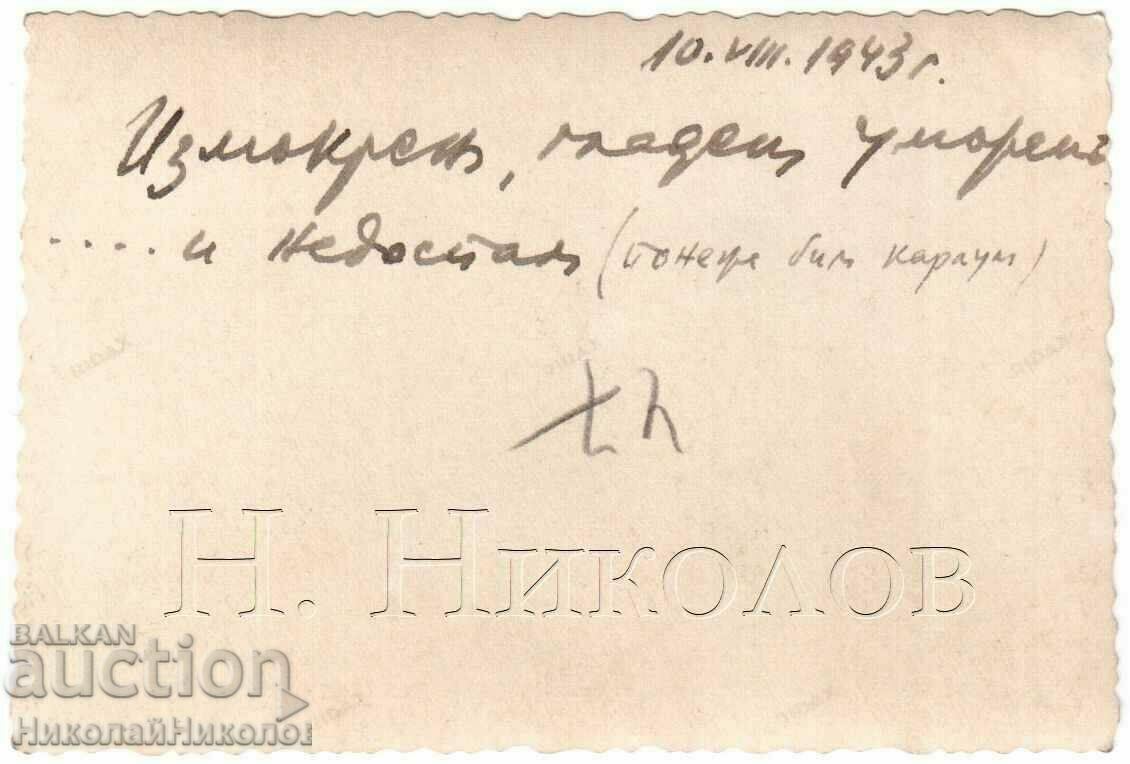 10.VIII.1943 г.
Измокрен, гладен, уморенъ
..... и недоспал (понеже бил караул)
ХК
Н. Николов
BALKAN
auction
НиколайНиколов